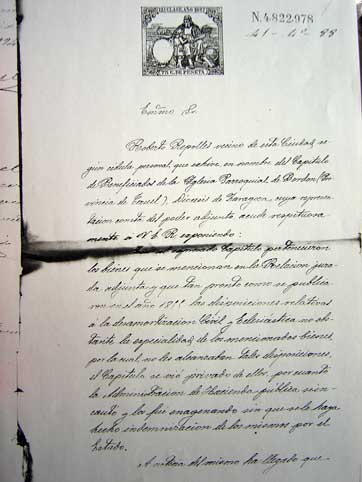 12ª CLASE. AÑO 1887
75 C. DE PESETA
N.4.822.978
Exmo Sr.
Roberto Repollés vecino de esta Ciudad, se
gún cédula personal, que exhive, en nombre del Capítulo
de Beneficiados de la Yglesia Parroquial de Bordon (Pro
vincia de Teruel), Diócesis de Zaragoza, cuya represen
tacion consta del poder adjunto, acude respetuosa
mente á V. E. esponiendo:
al espresado Capítulo pertenecieron
los bienes que se mencionan en la Relacion jura
da adjunta, y que tan pronto como se publica
ron en el año las disposiciones relativas
á la desamortizacion Civil y Eclesiástica no obs
tante la especialidad de los mencionados bienes,
por la cual no les alcanzaban tales disposiciones,
el Capítulo se vió privado de ellos, por cuanto
la Administracion de Hacienda pública se in
cautó y los fue enagenando sin que se le haya
hecho indemnizacion de los mismos por el
Estado.
A noticia del mismo ha llegado que